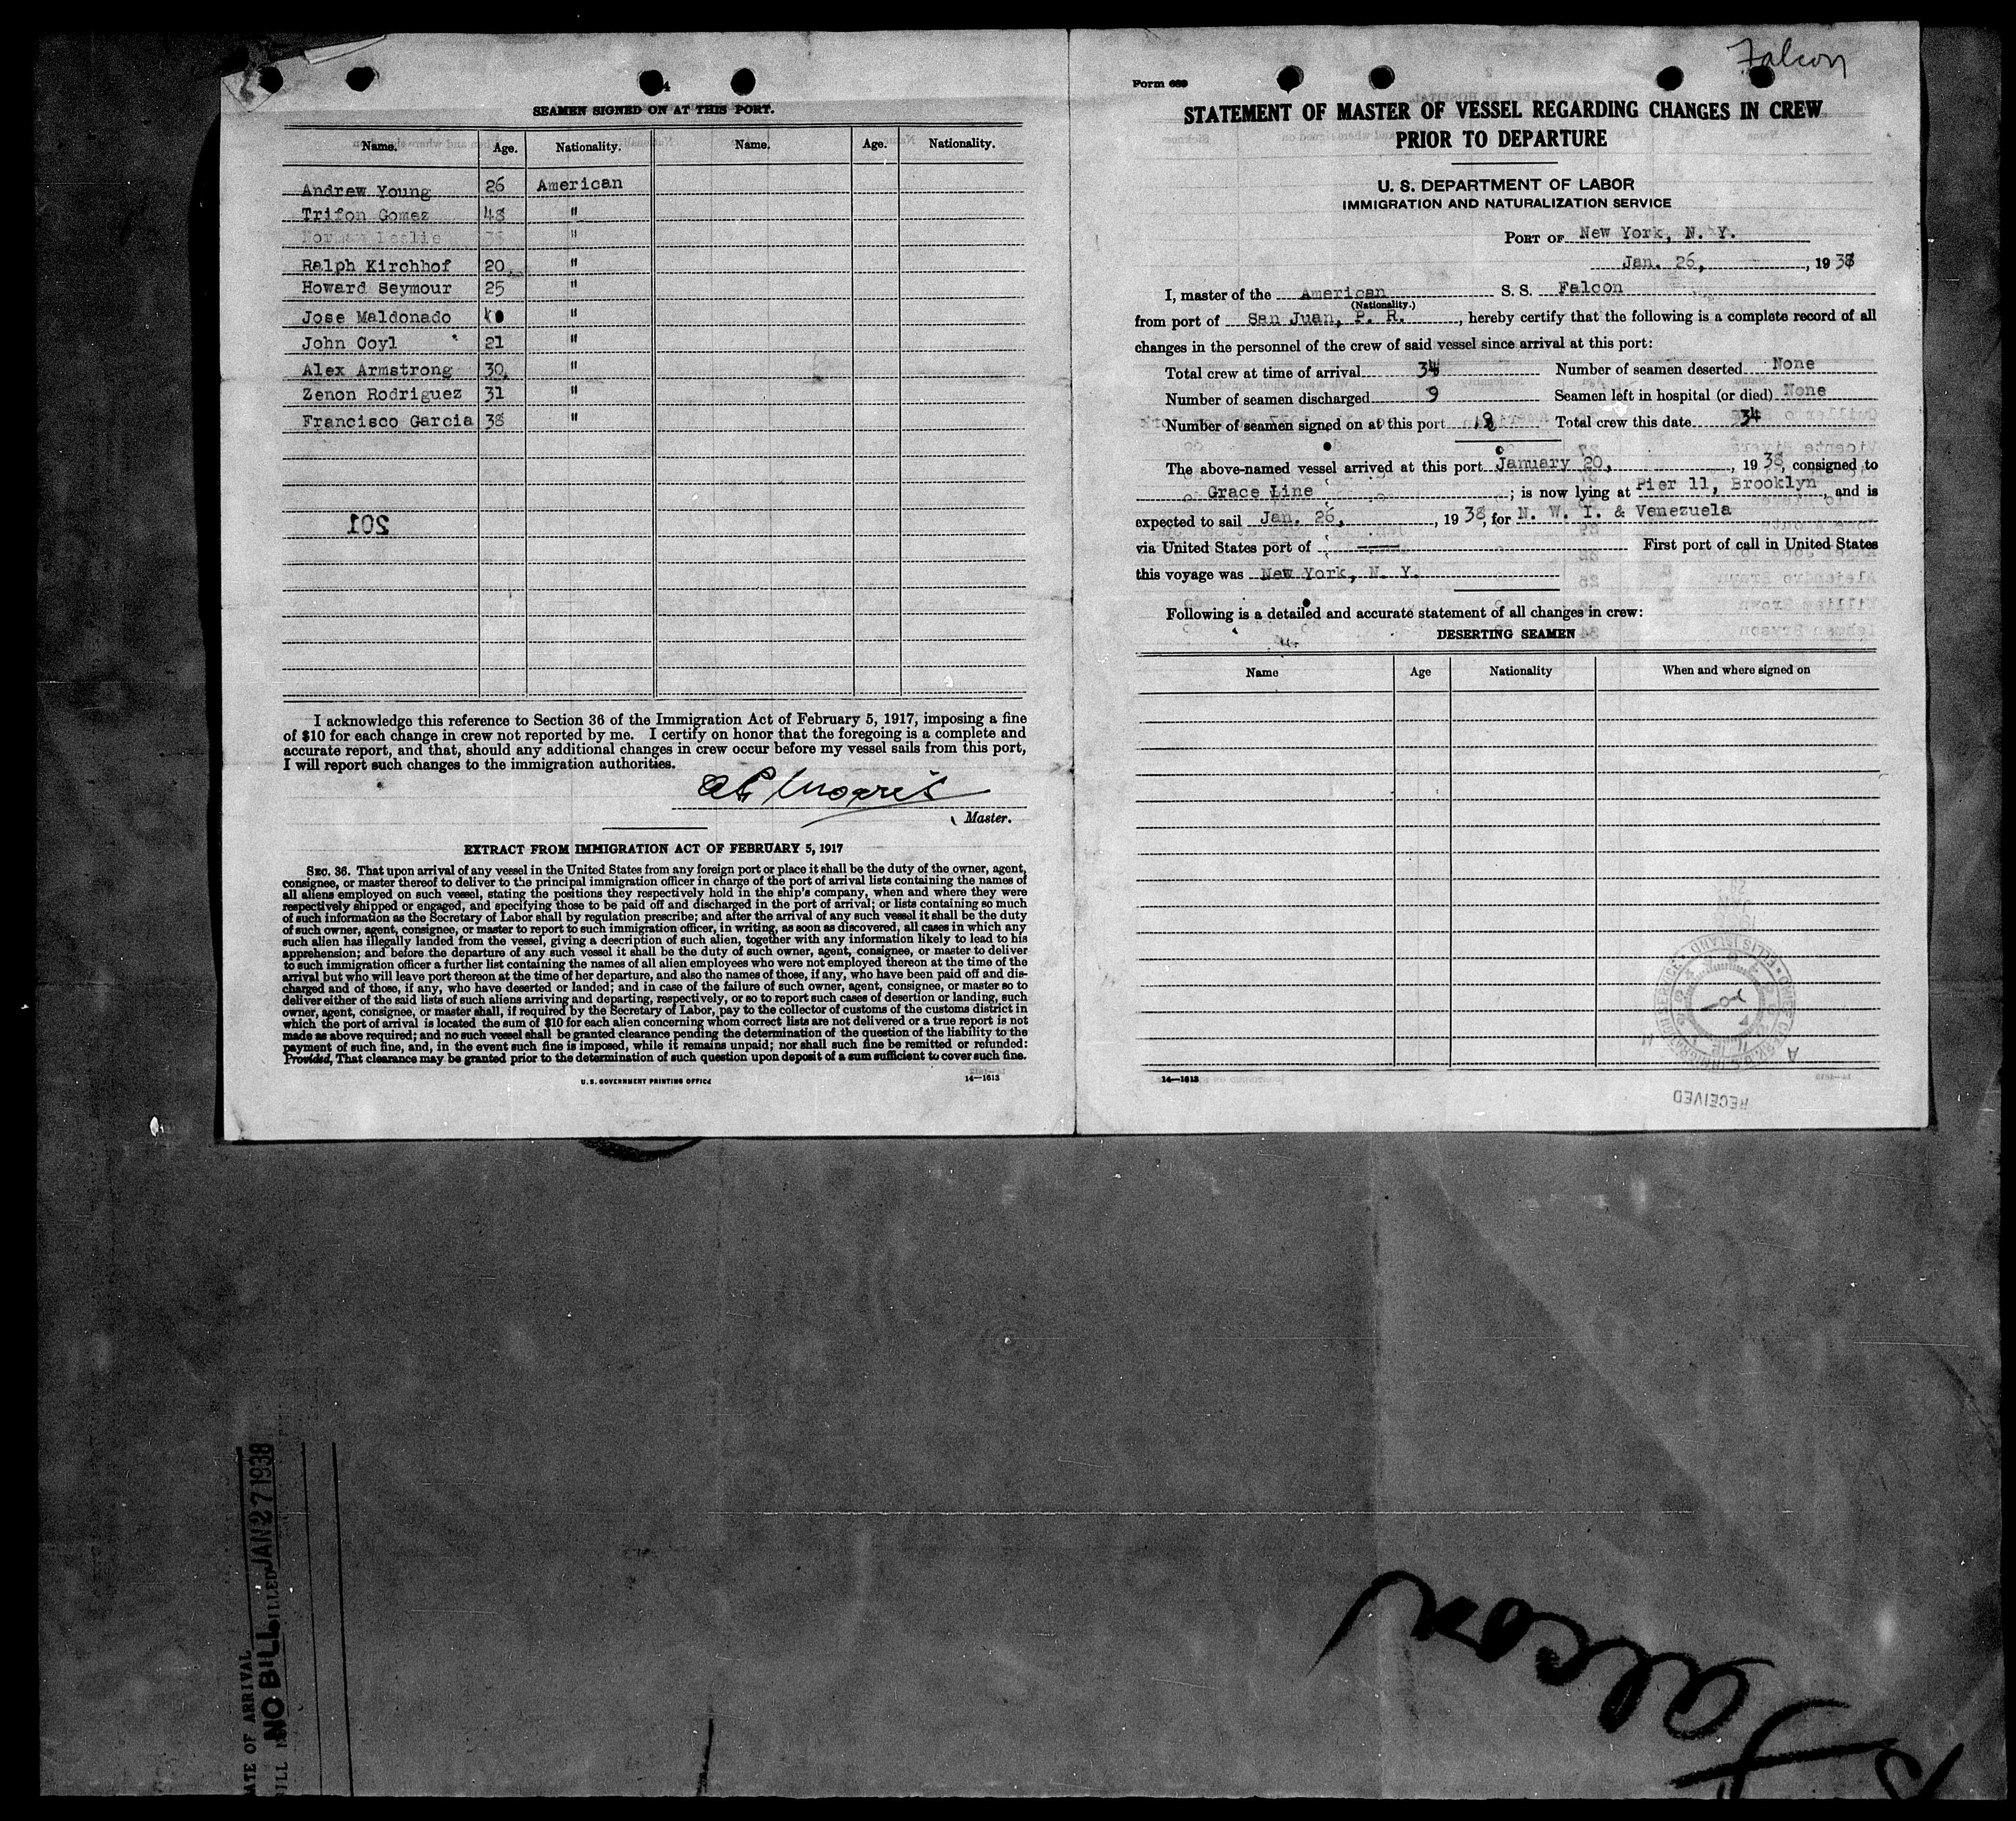 4
SEAMEN SIGNED ON AT THIS PORT.
Name. Age. Nationality. Name. Age. Nationality.
Andrew Young 26 American
Trifon Gomez 48 "
Norman Leslie 38 "
Ralph Kirchhof 20 "
Howard Seymour 25 "
Jose Maldonado "
John Coyl 21 "
Alex Armstrong 30 "
Zenon Rodriguez 31 "
Francisco Garcia 38 "
201
I acknowledge this reference to Section 36 of the Immigration Act of February 5, 1917, imposing a fine
of $10 for each change in crew not reported by me. I certify on honor that the foregoing is a complete and
accurate report, and that, should any additional changes in crew occur before my vessel sails from this port,
I will report such changes to the immigration authorities.
Master.
EXTRACT FROM IMMIGRATION ACT OF FEBRUARY 5, 1917
SEC. 36. That upon arrival of any vessel in the United States from any foreign port or place it shall be the duty of the owner, agent,
consignee, or master thereof to deliver to the principal immigration officer in charge of the port of arrival lists containing the names of
all aliens employed on such vessel, stating the positions they respectively hold in the ship's company, when and where they were
respectively shipped or engaged, and specifying those to be paid off and discharged in the port of arrival; or lists containing so much
of such information as the Secretary of Labor shall by regulation prescribe; and after the arrival of any such vessel it shall be the duty
of such owner, agent, consignee, or master to report to such immigration officer, in writing, as soon as discovered, all cases in which any
such alien has illegally landed from the vessel, giving a description of such alien, together with any information likely to lead to his
apprehension; and before the departure of any such vessel it shall be the duty of such owner, agent, consignee, or master to deliver
to such immigration officer a further list containing the names of all alien employees who were not employed thereon at the time of the
arrival but who will leave port thereon at the time of her departure, and also the names of those, if any, who have been paid off and dis-
charged and of those, if any, who have deserted or landed; and in case of the failure of such owner, agent, consignee, or master so to
deliver either of the said lists of such aliens arriving and departing, respectively, or so to report such cases of desertion or landing, such
owner, agent, consignee, or master shall, if required by the Secretary of Labor, pay to the collector of customs of the customs district in
which the port of arrival is located the sum of $10 for each alien concerning whom correct lists are not delivered or a true report is not
made as above required; and no such vessel shall be granted clearance pending the determination of the question of the liability to the
payment of such fine, and, in the event such fine is imposed, while it remains unpaid; nor shall such fine be remitted or refunded:
Provided, That clearance may be granted prior to the determination of such question upon deposit of a sum sufficient to cover such fine.
U. S. GOVERNMENT PRINTING OFFICE 14—1613
Falcon
Form 689
STATEMENT OF MASTER OF VESSEL REGARDING CHANGES IN CREW
PRIOR TO DEPARTURE
U. S. DEPARTMENT OF LABOR
IMMIGRATION AND NATURALIZATION SERVICE
PORT OF New York, N. Y.
Jan. 26, , 1938
I, master of the American S. S. Falcon
(Nationality.)
from port of San Juan, P. R. , hereby certify that the following is a complete record of all
changes in the personnel of the crew of said vessel since arrival at this port:
Total crew at time of arrival 34 Number of seamen deserted None
Number of seamen discharged 9 Seamen left in hospital (or died) None
Number of seamen signed on at this port Total crew this date 34
The above-named vessel arrived at this port January 20, , 1938, consigned to
Grace Line ; is now lying at Pier 11, Brooklyn , and is
expected to sail Jan. 26, , 1938, for N. W. I. & Venezuela
via United States port of First port of call in United States
this voyage was New York, N. Y.
Following is a detailed and accurate statement of all changes in crew:
DESERTING SEAMEN
Name Age Nationality When and where signed on
14—1613
RECEIVED
ATE OF ARRIVAL
NO BILL
BILLED JAN 27 1938
Falcon